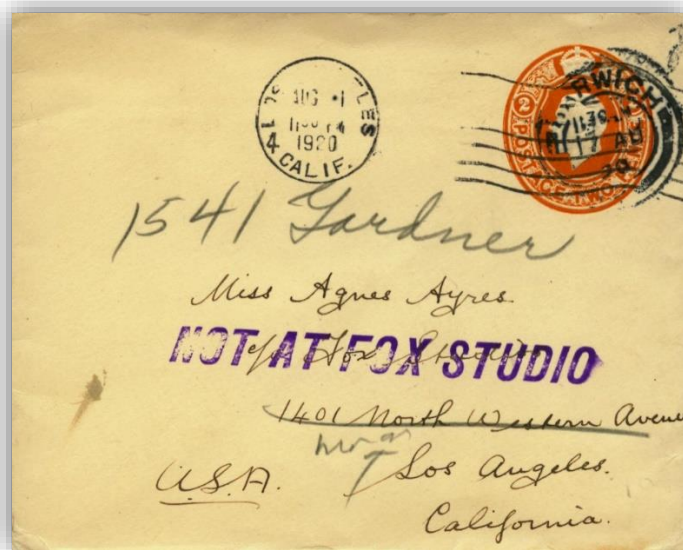 LES
AUG
1920
CALIF.
NORWICH
2
POSTAGE TWO PENCE
1541 Gardner
Miss Agnes Ayres.
c/o Fox Studio
NOT AT FOX STUDIO
1401 North Western Avenue
U.S.A.
Los Angeles.
California.